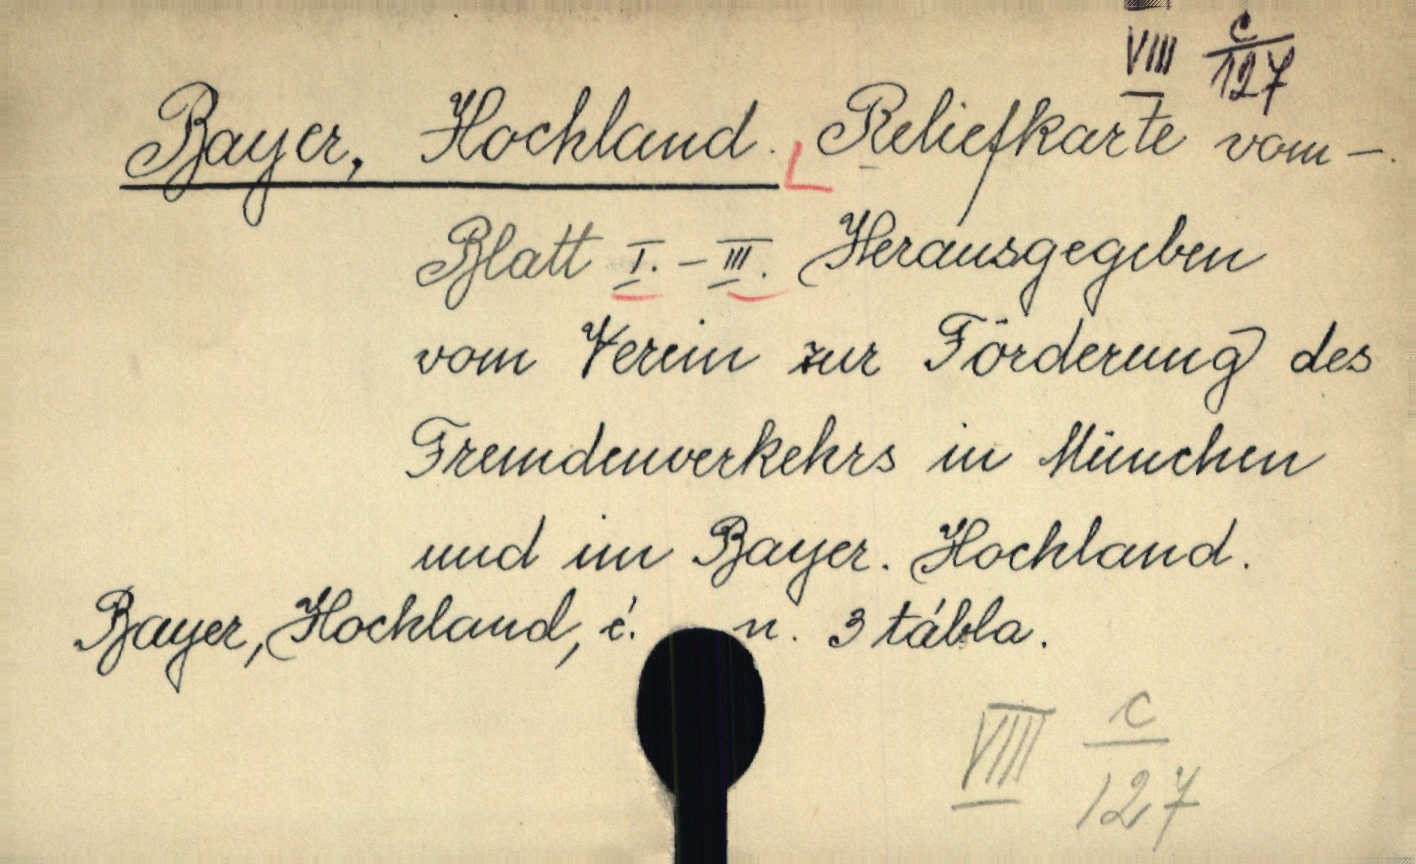 VIII c/127
Bayer, Hochland. Reliefkarte vom –.
Blatt I. – III. Herausgegeben
vom Verein zur Förderung des
Fremdenverkehrs in München
und im Bayer. Hochland.
Bayer, Hochland, é. n. 3 tábla.
VIII c/127